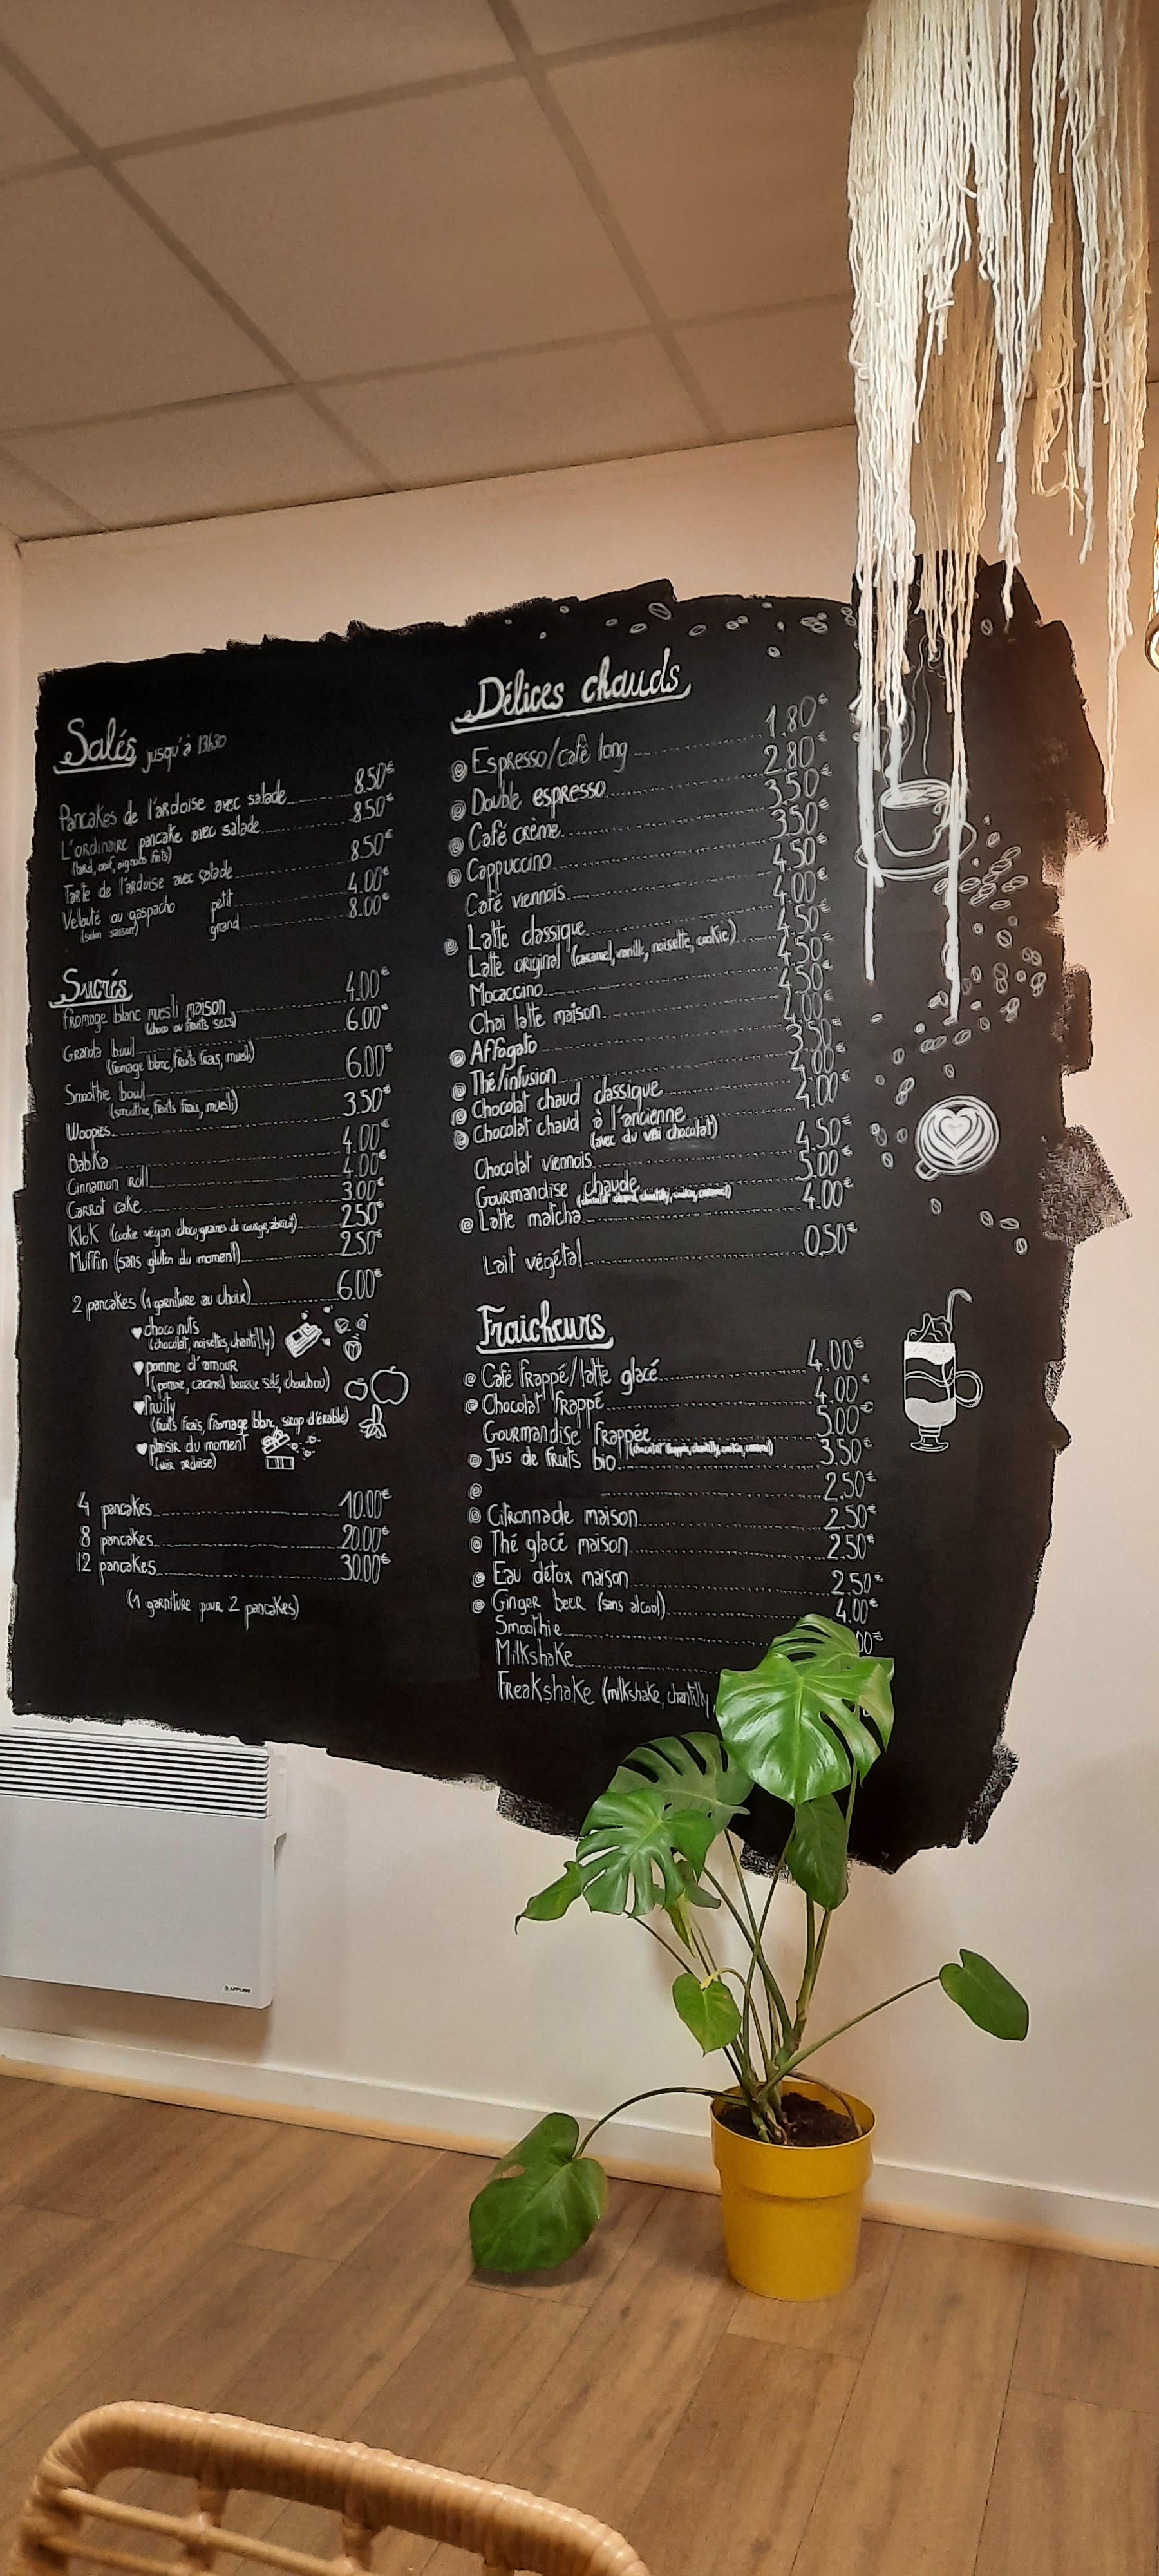 Salés jusqu'à 13h30
Pancakes de l'ardoise avec salade 8.50€
L'ordinaire pancake avec salade 8.50€
(lard, œuf, oignons frits)
Tarte de l'ardoise avec salade 8.50€
Velouté ou gaspacho petit 4.00€
(selon saison) grand 8.00€
Sucrés
fromage blanc muesli maison 4.00€
(choco ou fruits secs)
Granola bowl 6.00€
(fromage blanc, fruits frais, muesli)
Smoothie bowl 6.00€
(smoothie, fruits frais, muesli)
Woopies 3.50€
Babka 4.00€
Cinnamon roll 4.00€
Carrot cake 3.00€
Klok (cookie végan choco, graines de courge, abricot) 2.50€
Muffin (sans gluten du moment) 2.50€
2 pancakes (1 garniture au choix) 6.00€
choco nuts
(chocolat, noisettes, chantilly)
pomme d'amour
(pomme, caramel beurre salé, chouchou)
fruity
(fruits frais, fromage blanc, sirop d'érable)
plaisir du moment
(voir ardoise)
4 pancakes 10.00€
8 pancakes 20.00€
12 pancakes 30.00€
(1 garniture pour 2 pancakes)
Délices chauds
@ Espresso/café long 1.80€
@ Double espresso 2.80€
@ Café crème 3.50€
@ Cappuccino 3.50€
Café viennois 4.50€
@ Latte classique 4.00€
Latte original (caramel, vanille, noisette, cookie) 4.50€
Mocaccino 4.50€
Chai latte maison 4.50€
@ Affogato
@ Thé/infusion 3.50€
@ Chocolat chaud classique 4.00€
@ Chocolat chaud à l'ancienne 4.00€
(avec du vrai chocolat)
Chocolat viennois 4.50€
Gourmandise chaude 5.00€
@ Latte matcha 4.00€
Lait végétal 0.50€
Fraicheurs
@ Café frappé/latte glacé 4.00€
@ Chocolat frappé 4.00€
Gourmandise frappée 5.00€
@ Jus de fruits bio 3.50€
@ 2.50€
@ Citronnade maison 2.50€
@ Thé glacé maison 2.50€
@ Eau détox maison 2.50€
@ Ginger beer (sans alcool) 4.00€
Smoothie 00€
Milkshake
Freakshake (milkshake, chantilly,